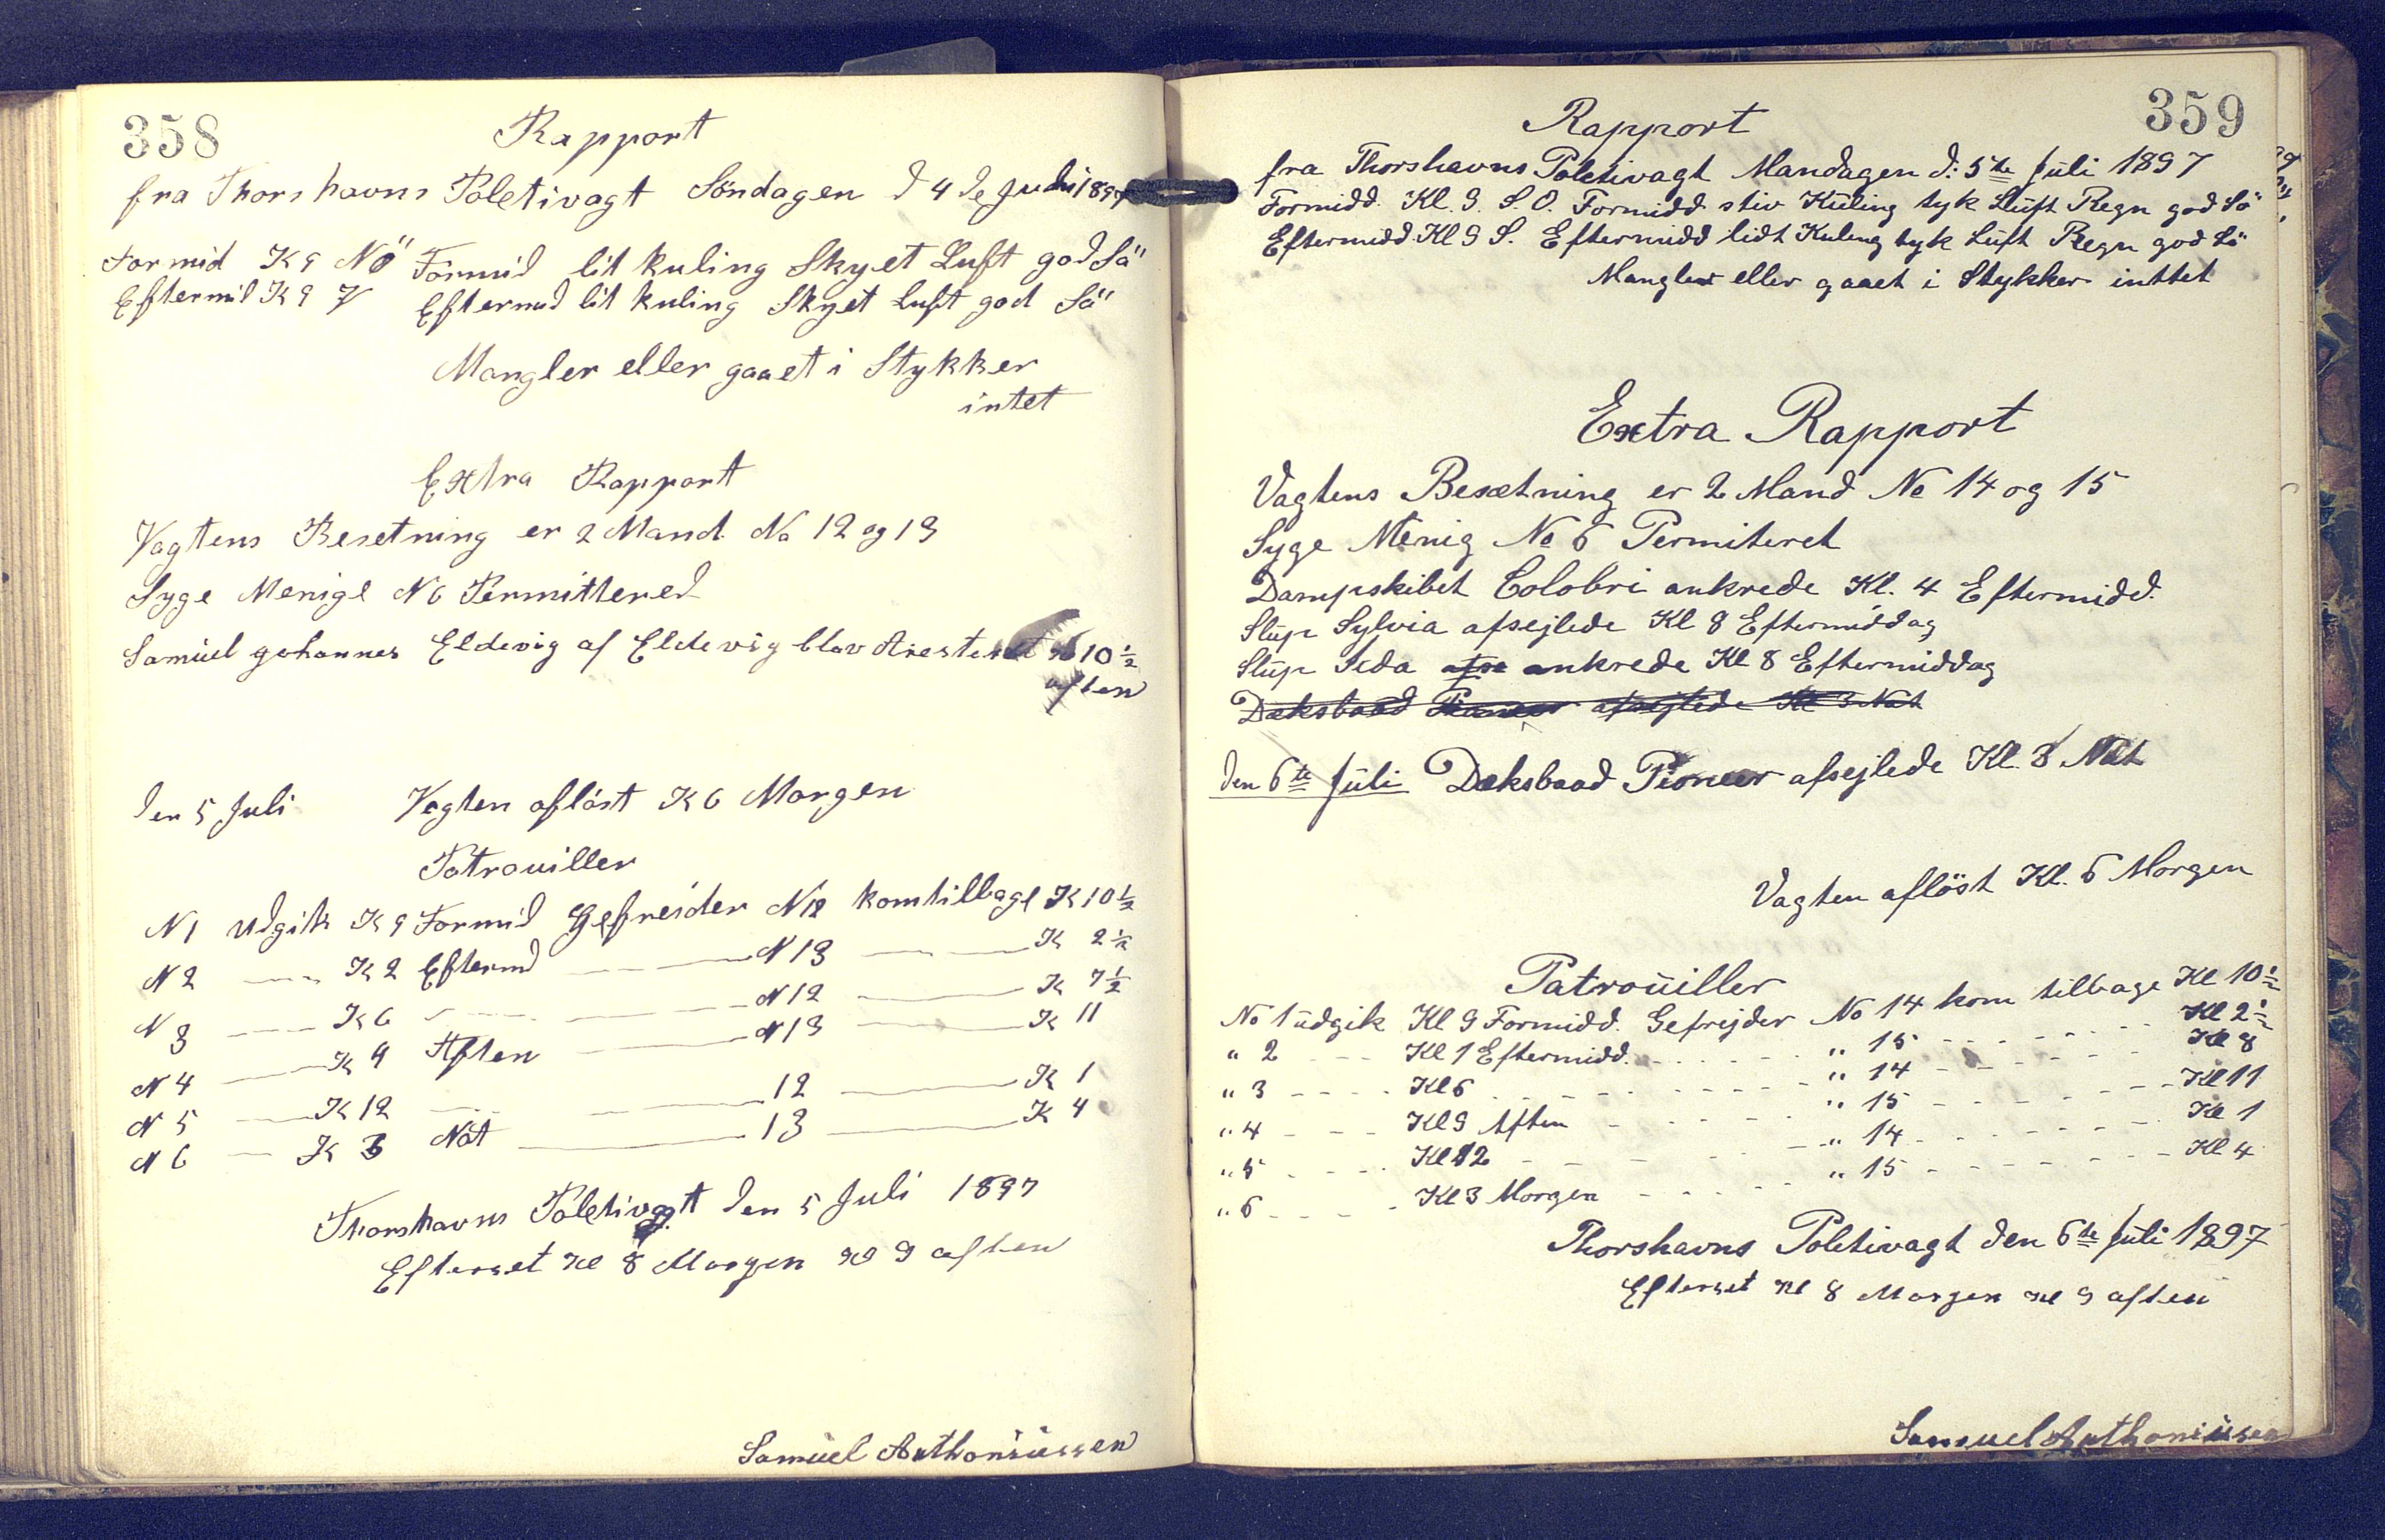 358
Rapport
fra Thorshavns Poletivagt Söndagen d 4 de Juli 1897
Formid K 9 NÖ Formid lit kuling Skyet Luft god Sö
Eftermid K 9 V Eftermid lit kuling Skyet Luft god Sö
Mangler eller gaaet i Stykker
intet
Extra Rapport
Vagtens Besetning er 2 Mand No 12 og 13
Syge Menige N 6 Permittered
Samúel Johannes Eldevig af Eldevig blev Aresteret Kl 10½
aften
den 5 Juli Vagten aflöst K 6 Morgen
Patrouiller
N 1 Udgik K 9 Formid Gefreider N 12 kom tilbage K 10½
N 2 K 2 Eftermd N 13 K 2½
N 3 K 6 N 12 K 7½
N 4 K 9 Aften N 13 K 11
N 5 K 12 12 K 1
N 6 K 3 Nat 13 K 4
Thorshavns Poletivagt den 5 Juli 1897
Efterset Kl 8 Morgen Kl 9 aften
Samúel Anthoniússen
359
Rapport
fra Thorshavns Poletivagt Mandagen d: 5te Júli 1897
Formidd. Kl. 9. S.O. Formidd stiv Kúling tyk Lúft Regn god Sö
Eftermidd. Kl 9 S. Eftermidd lidt Kuling tyk Lúft Regn god Sö
Mangler eller gaaet i Stykker inttet
Extra Rapport
Vagtens Besætning er 2 Mand No 14 og 15
Syge Menig No 6 Permiteret
Dampskibet Colobri ankrede Kl. 4 Eftermidd.
Slúp Sylvia afsejlede Kl 8 Eftermiddag
Slúp Ida afse ankrede Kl 8 Eftermiddag
Dæksbaad Pioneer afsejlede Kl 3 Nat
den 6te Júli Dæksbaad Pioneer afsejlede Kl. 3 Nat
Vagten aflöst Kl. 6 Morgen
Patroúiller
No 1 údgik Kl 9 Formidd. Gefrejder No 14 kom tilbage Kl 10½
" 2 Kl 1 Eftermidd. " 15 Kl 2½
" 3 Kl 6 " 14 Kl 8
" 4 Kl 9 Aften " 15 Kl 11
" 5 Kl 12 " 14 Kl 1
" 6 Kl 3 Morgen " 15 Kl 4
Thorshavns Poletivagt den 6te Júli 1897
Efterset Kl 8 Morgen Kl 9 aften
Samuel Anthoniússen